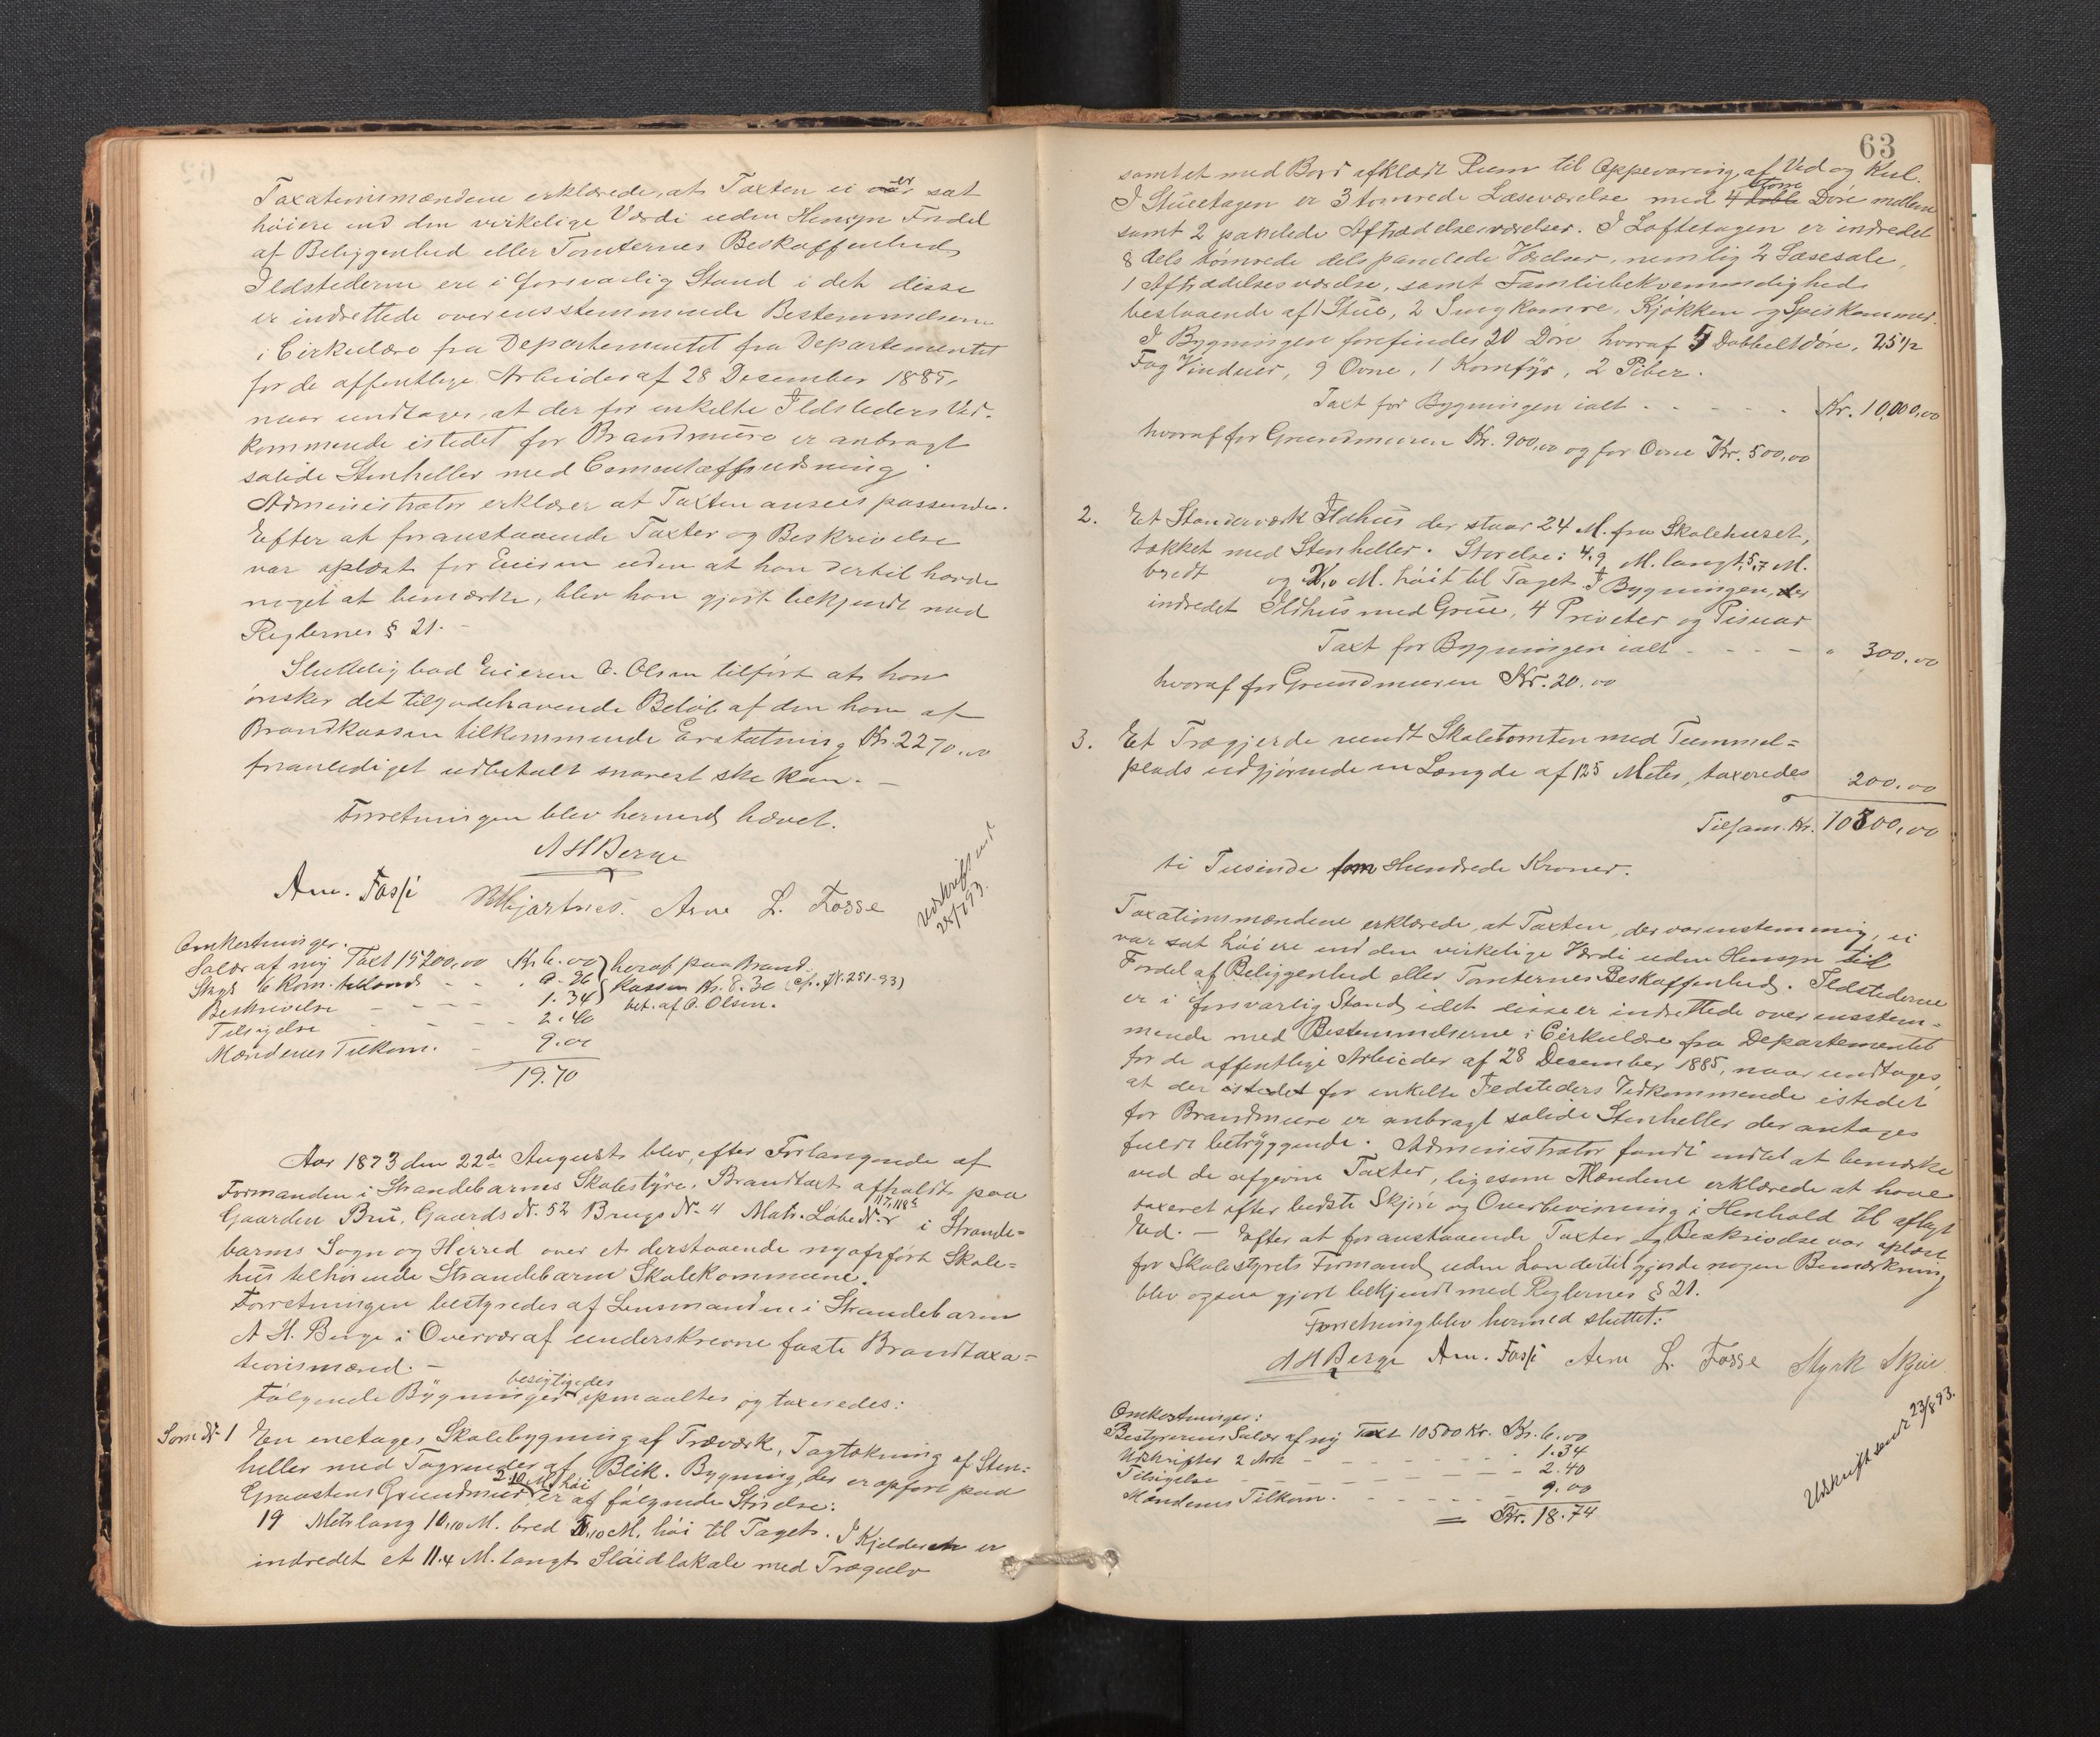 Taxationsmændene erklærede, at Taxten ei er sat
höiere end den virkelige Værdi uden Hensyn Fordel
af Beliggenhed eller Tomternes Beskaffenhed
Ildstederne ere i forsvarlig Stand i det disse
er indrettede overensstemmende Bestemmelserne
i Cirkulære fra Departementet fra Departementet
for de offentlige Arbeider af 28 Desember 1885,
naar undtages, at der for enkelte Ildsteders Ved-
kommende istedet for Brandmure er anbragt
solide Stenheller med Cement
Administrator erklærer at Taxten ansees passende.
Efter at foranstaaende Taxter og Beskrivelse
var oplæst for Eieren uden at han dertil havde
noget at bemærke, blev han gjort bekjendt med
Reglernes § 21.-
Sluttelig bad Eieren O. Olsen tilført at han
ønsker det tilgodehavende Beløb af den ham af
Brandkassen tilkommende Erstatning Kr. 2270,00
foranlediget udbetalt snarest ske kan. -
Forretningen blev hermed hævet.
A H Berge
Am. Fosse Arne L. Fosse
Udskrift sendt
28/7 93.
Omkostninger.
Salær af ny Taxt 15200,00 Kr. 6.00 heraf paa Brand-
Skyds 6 Kom. tillands - - 0.96 kassen Kr. 8.30 (cfr. J.N. 251-93)
Beskrivelse - - - 1.34 bet. af O. Olsen.
Tilsigelse - - - 2.40
Mændenes Tilkom. - 9.00
19.70
Aar 1893 den 22de August blev, efter Forlangende af
Formanden i Strandebarms Skolestyre, Brandtaxt afholdt paa
Gaarden Bru, Gaards No. 52 Brugs No. 4 Matr. Løbe No. 117, 118 i Strande-
barms Sogn og Herred over et derstaaende nyopført Skole-
hus tilhørende Strandebarm Skolekommune.
Forretningen bestyredes af Lensmanden i Strandebarm
A H. Berge i Overvær af underskrevne faste Brandtaxa-
tionsmænd. -
Følgende Bygninger besigtigedes, opmaaltes og taxeredes:
Som No. 1 En enetages Skolebygning af Træværk, Tagtækning af Sten-
heller med Tagrender af Blik. Bygning, der er opført paa
Graastens Grundmur 2.10 M. høi er af følgende Størelse:
19 Meter lang 10,10 M. bred 5,10 M. høi til Taget. I Kjelderen er
indredet et 11.4 M. langt Sløidlokale med Trægulv
63
samt et med Bord afklædt Rum til Oppevaring af Ved og Kul.
I Stueetagen er 3 tømrede Læseværelse med 4 store Døre mellem
samt 2 panelede Aftrædelsesværelser. I Loftetagen er indredet
8 dels tømrede dels panelede Værelser, nemlig 2 Læsesale,
1 Aftrædelsesværelse, samt Familiebekvemmelighed
bestaaende af 1 Stue, 2 Sengkamre, Kjøkken og Spiskammer.
I Bygningen forefindes 20 Døre hvoraf 5 Dobbeltdøre, 25½
Fag Vinduer, 9 Ovne, 1 Komfyr, 2 Piber.
Taxt for Bygningen ialt - - - - - Kr. 10,000,00
hvoraf for Grundmuren Kr. 900,00 og for Ovne Kr. 500,00
2. Et Standerværk Ildhus der staar 24 M. fra Skolehuset,
tækket med Stenheller. Størelse: 4.9 M. langt, 5,7 M.
bredt og 2,0 M. høit til Taget. I Bygningen, er
indredet Ildhus med Grue, 4 Priveter og Pisuar
Taxt for Bygningen ialt - - - - " 300,00
hvoraf for Grundmuren Kr. 20.00
3. Et Trægjerde rundt Skoletomten med Tummel-
plads udgjørende en Længde af 125 Meter, taxeredes 200,00
Tilsam. Kr. 10500,00
ti Tusinde fem Hundrede Kroner.
Taxationsmændene erklærede, at Taxten, der var enstemmig, ei
var sat høiere end den virkelige Værdi uden Hensyn til
Fordel af Beliggenhed eller Tomternes Beskaffenhed. Ildstederne
er i forsvarlig Stand idet disse er indrettede overensstem-
mende med Bestemmelserne i Cirkulære fra Departementet
for de offentlige Arbeider af 28 December 1885, naar undtages,
at der istedet for enkelte Ildsteders Vedkommende istedet
for Brandmure er anbragt solide Stenheller der antages
fuldt betryggende. Administrator fandt intet at bemærke
ved de afgivne Taxter, ligesom Mændene erklærede at have
taxeret efter bedste Skjøn og Overbevisning i Henhold til aflagt
Ed. - Efter at foranstaaende Taxter og Beskrivelse var oplæst
for Skolestyrets Formand, uden han dertil gjorde nogen Bemærkning
blev ogsaa gjort bekjendt med Reglernes § 21.
Forretning blev hermed sluttet:
A H Berge Am. Fosse Arne L. Fosse Styrk Skjie
Omkostninger:
Bestyrerens Salær af ny Taxt 10500 Kr. Kr. 6.00
Udskrifter 2 Ark - - - - - 1.34
Tilsigelse - - - - - 2.40
Mændenes Tilkom. - - - - 9.00
= Kr. 18.74
Udskrift sendt 23/8 93.